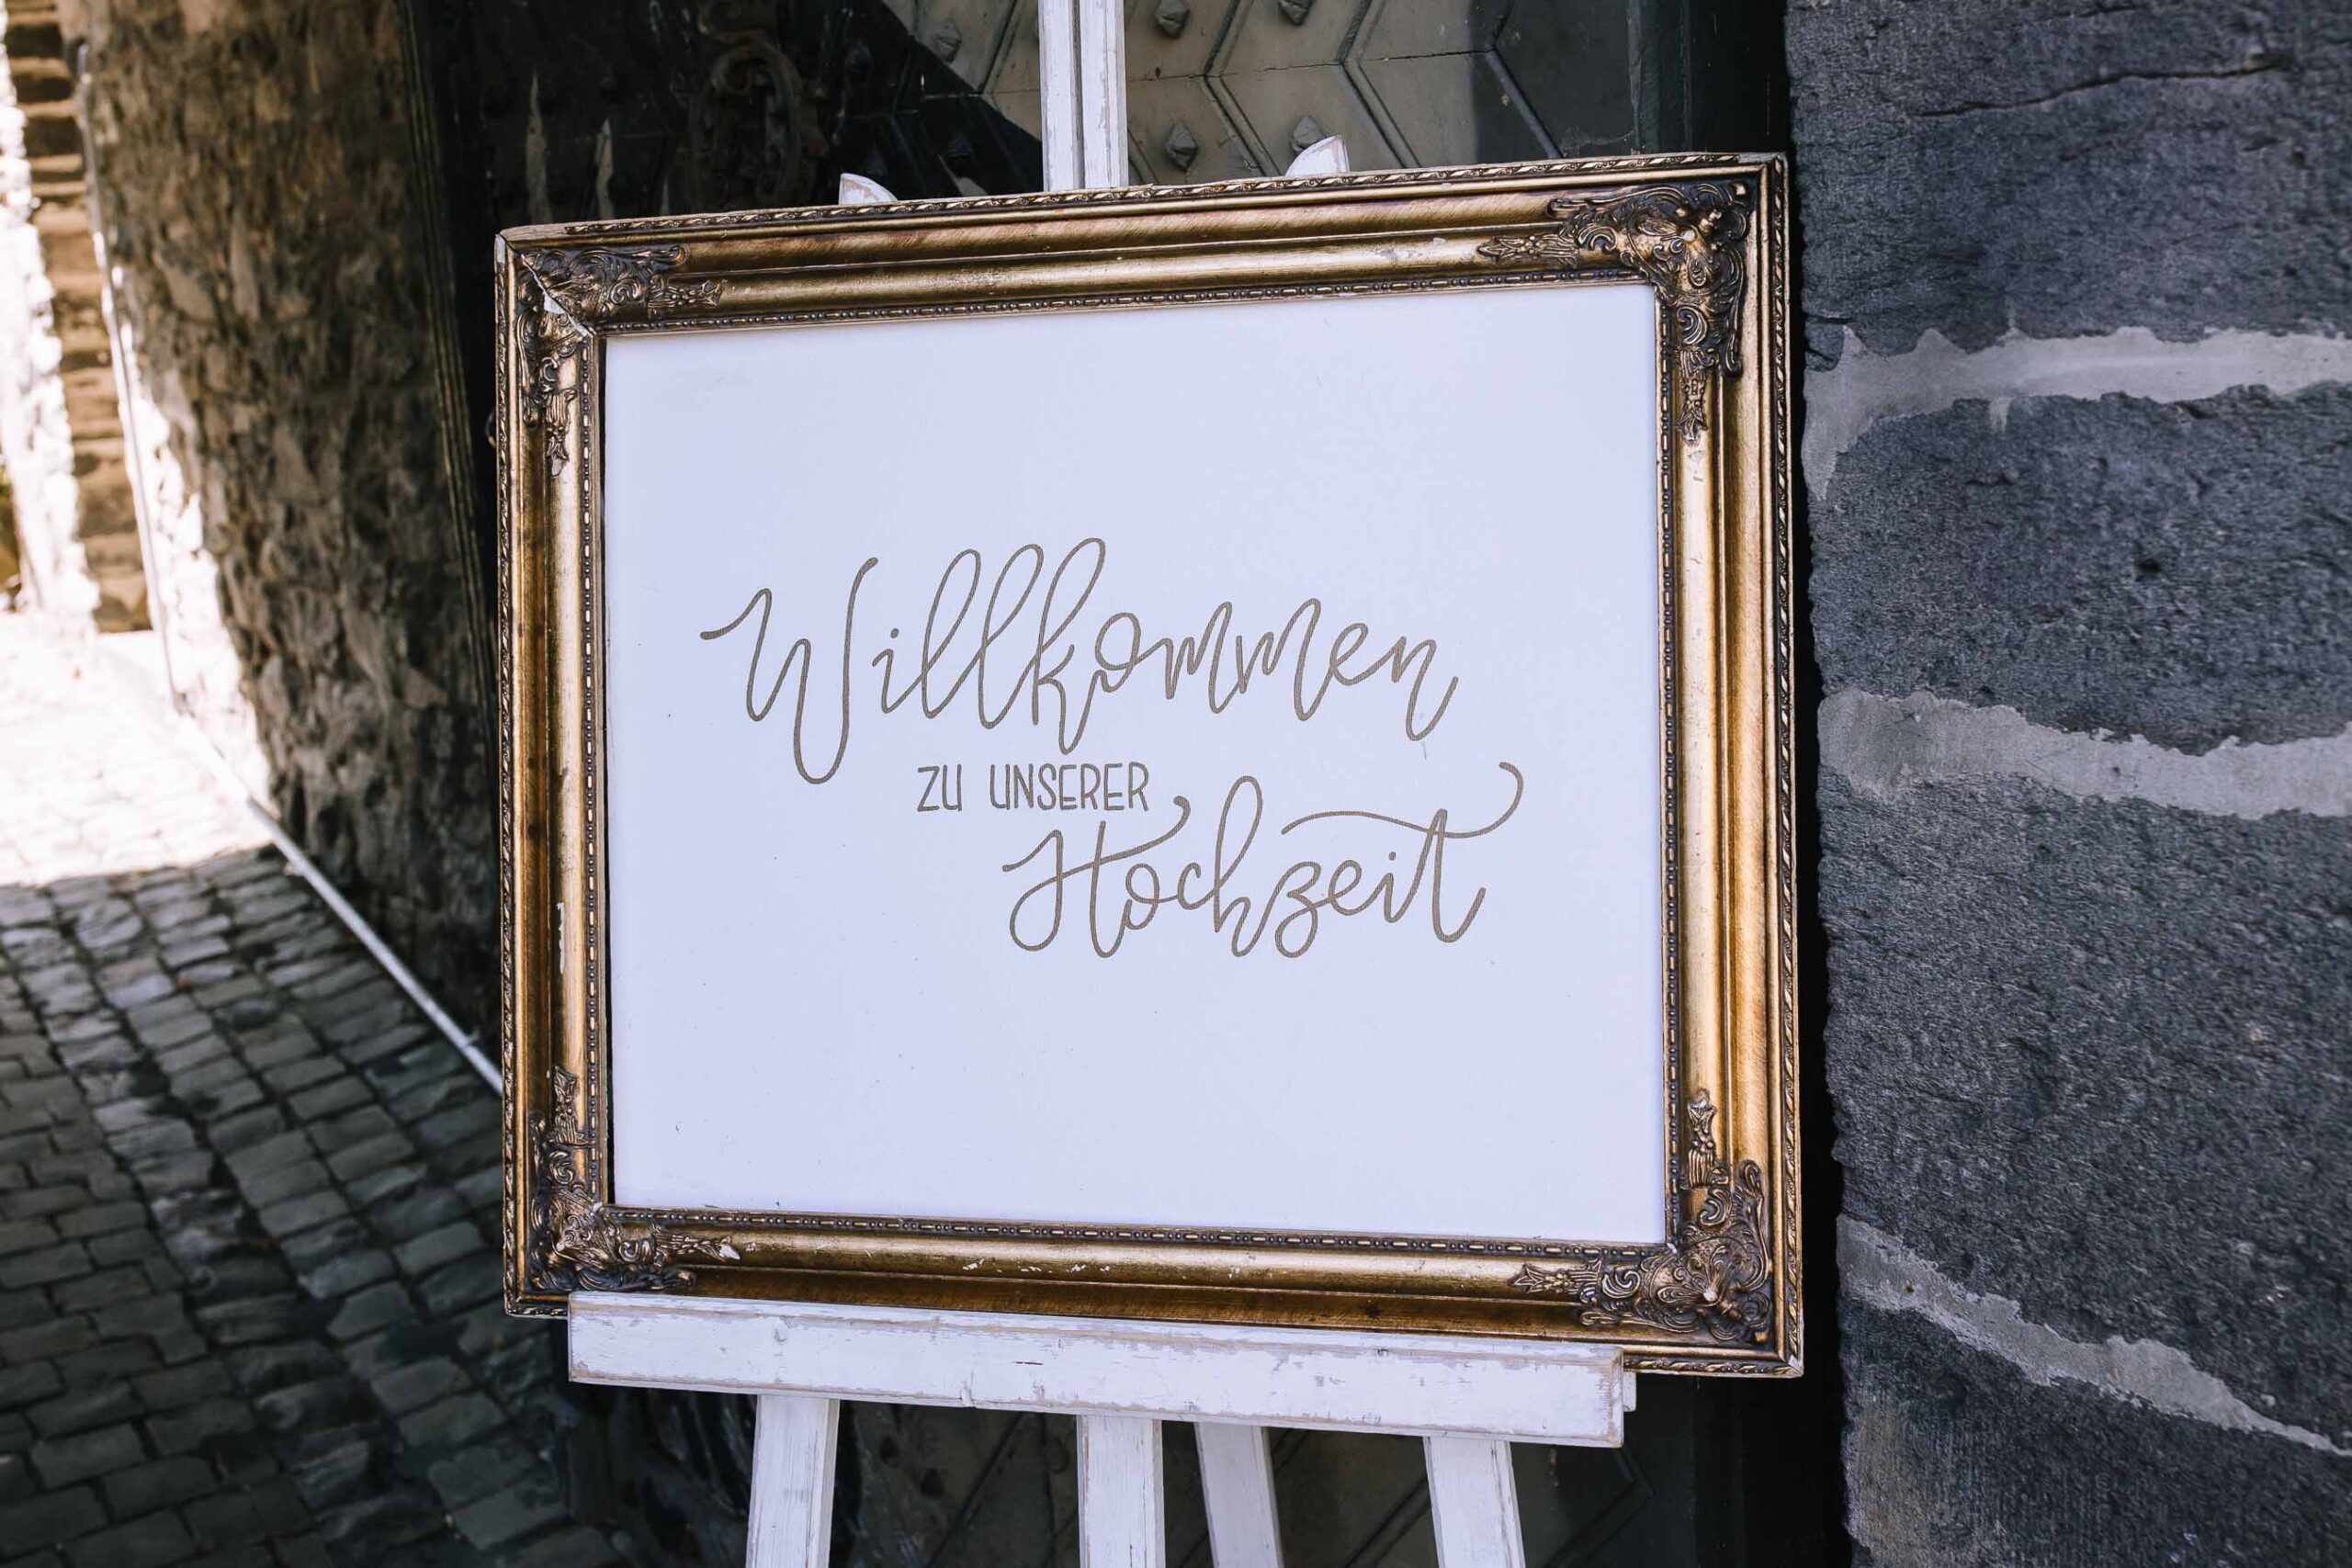 Willkommen
ZU UNSERER
Hochzeit